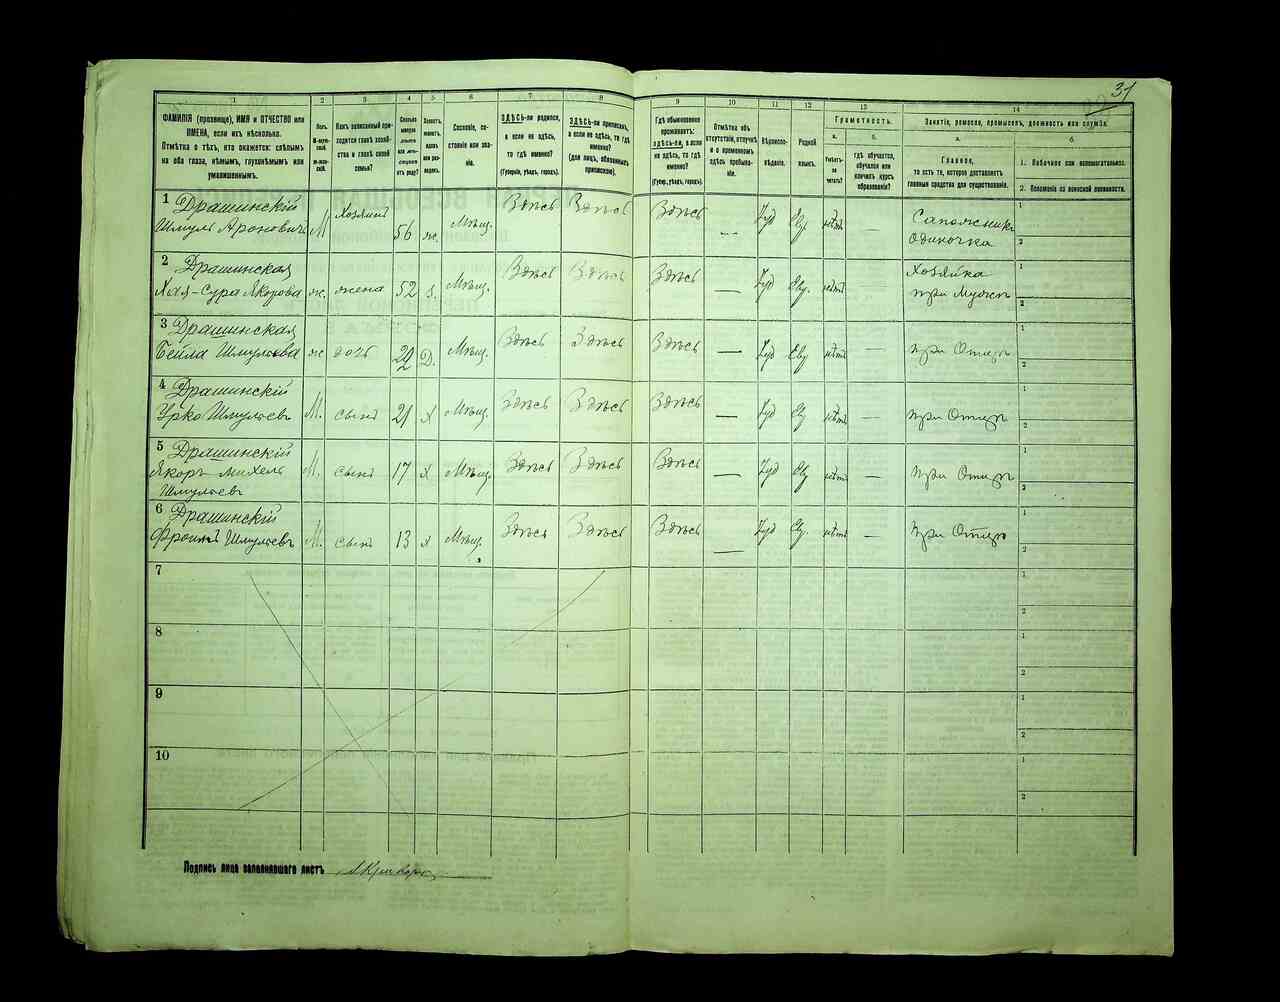 31
1 2 3 4 5 6 7 8 9 10 11 12 13 14
ФАМИЛІЯ (прозвище), ИМЯ и ОТЧЕСТВО или
ИМЕНА, если ихъ нѣсколько.
Отмѣтка о тѣхъ, кто окажется: слѣпымъ
на оба глаза, нѣмымъ, глухонѣмымъ или
умалишеннымъ.
Полъ.
М-муж-
ской.
Ж-жен-
скій.
Какъ записанный при-
ходится главѣ хозяй-
ства и главѣ своей
семьи?
Сколько
минуло
лѣтъ
или мѣ-
сяцевъ
отъ роду?
Холостъ,
женатъ,
вдовъ
или раз-
веденъ.
Сословіе, со-
стояніе или зва-
ніе.
ЗДѢСЬ-ли родился,
а если не здѣсь,
то гдѣ именно?
(Губернія, уѣздъ, городъ).
ЗДѢСЬ-ли приписанъ,
а если не здѣсь, то гдѣ
именно?
(для лицъ, обязанныхъ
припискою).
Гдѣ обыкновенно
проживаетъ:
здѣсь-ли, а если
не здѣсь, то гдѣ
именно?
(Губер., уѣздъ, городъ).
Отмѣтка объ
отсутствіи, отлучкѣ
и о временномъ
здѣсь пребыва-
ніи.
Вѣроиспо-
вѣданіе.
Родной
языкъ.
Грамотность.
а.
Умѣетъ-
ли
читать?
б.
гдѣ обучается,
обучался или
кончилъ курсъ
образованія?
Занятіе, ремесло, промыселъ, должность или служба.
а.
Главное,
то есть то, которое доставляетъ
главныя средства для существованія.
б.
1. Побочное или вспомогательное.
2. Положеніе по воинской повинности.
1 Драшинскій
Шмуль Ароновичъ М хозяинъ 56 ж. Мѣщ. Здѣсь Здѣсь Здѣсь — Іуд Евр нѣтъ — Сапожникъ
одиночка
1
2
2 Драшинская
Хая-Сура Якорова ж. жена 52 з. Мѣщ. Здѣсь Здѣсь Здѣсь — Іуд Евр. нѣтъ Хозяйка
при Мужѣ
1
2
3 Драшинская
Бейла Шмулева ж дочь 22 Д. Мѣщ. Здѣсь Здѣсь Здѣсь — Іуд Евр нѣтъ при Отцѣ
1
2
4 Драшинскій
Урко Шмулевъ М. сынъ 21 х Мѣщ. Здѣсь Здѣсь Здѣсь — Іуд Евр нѣтъ при Отцѣ
1
2
5 Драшинскій
Шмулевъ М. сынъ 17 х Мѣщ. Здѣсь Здѣсь Здѣсь — Іуд Евр нѣтъ — при Отцѣ
1
2
6 Драшинскій
Шмулевъ М. сынъ 13 х Мѣщ. Здѣсь Здѣсь Здѣсь — Іуд Евр. нѣтъ — при Отцѣ
1
2
7
1
2
8
1
2
9
1
2
10
1
2
Подпись лица заполнявшаго листъ